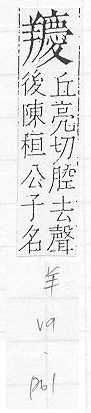 丘亮切腔去聲
後陳桓公子名
羊
V9
-